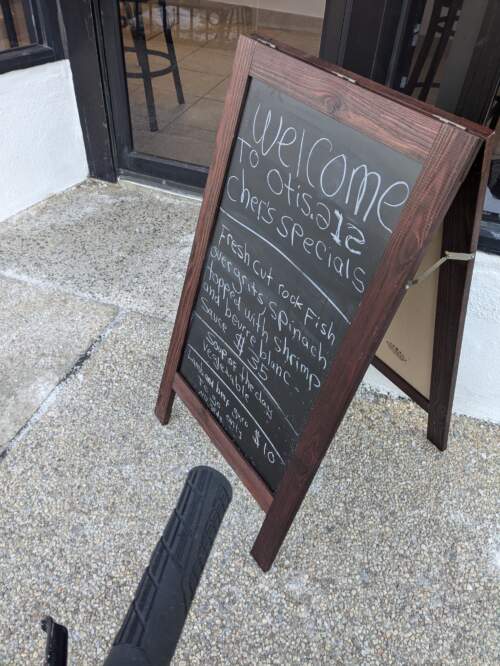 Welcome
To Otis.212
Chefs specials
Fresh cut rock Fish
over grits, spinach
topped with shrimp
and beurre blanc
sauce $55
Soup of the day
vegetable
$10